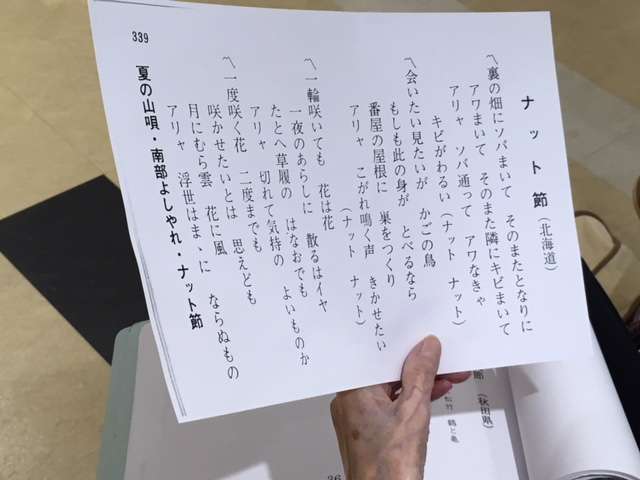 ナット節(北海道)
〽裏の畑にソバまいて そのまたとなりに
アワまいて そのまた隣にキビまいて
アリャ ソバ通って アワなきゃ
キビがわるい(ナット ナット)
〽会いたい見たいが かごの鳥
もしも此の身が とべるなら
番屋の屋根に 巣をつくり
アリャ こがれ鳴く声 きかせたい
(ナット ナット)
〽一輪咲いても 花は花
一夜のあらしに 散るはイヤ
たとへ草履の はなおでも
アリャ 切れて気持の よいものか
〽一度咲く花 二度までも
咲かせたいとは 思えども
月にむら雲 花に風 ならぬもの
アリャ 浮世はまゝに
夏の山唄・南部よしやれ・ナット節
339
節 (秋田県)
松竹 鶴と亀
36